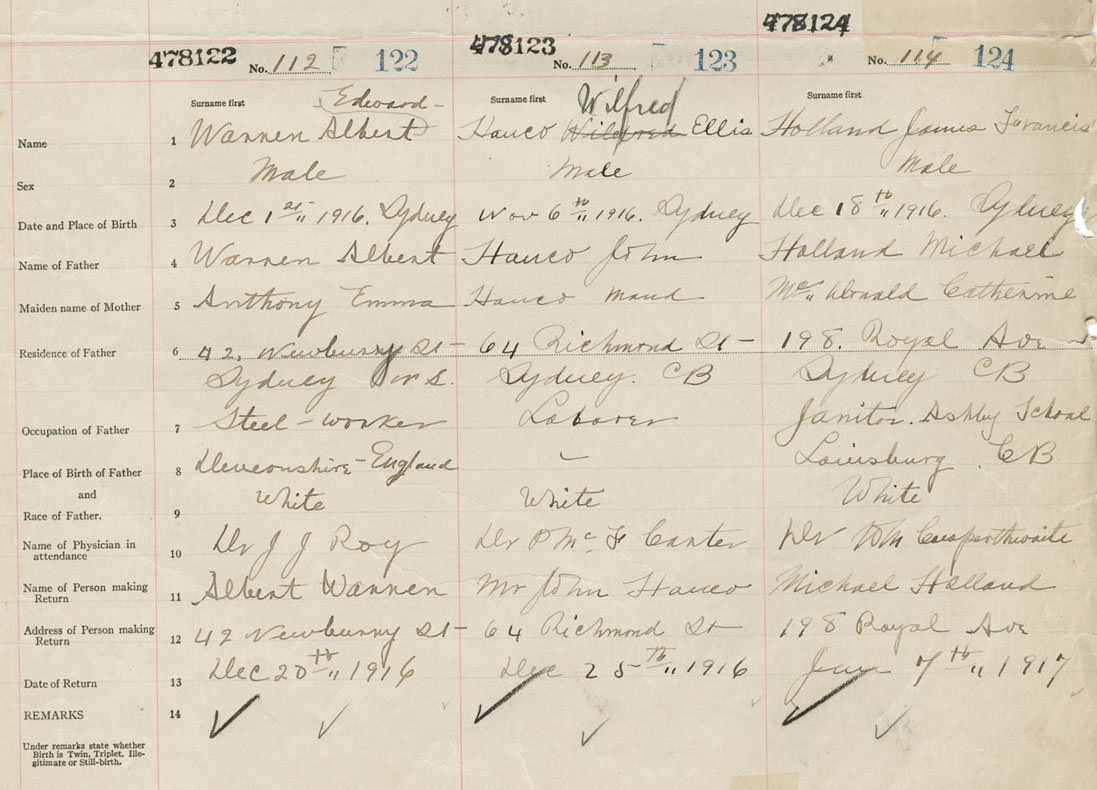 478122 478123 478124
No. 112 122 No. 113 123 No. 114 124
Surname first Edward Surname first Wilfred Surname first
Name 1 Warren Albert Hauco Wildred Ellis Holland James Francis
Sex 2 Male Male Male
Date and Place of Birth 3 Dec 1st 1916. Sydney Nov 6th 1916. Sydney Dec 18th 1916. Sydney
Name of Father 4 Warren Albert Hauco John Holland Michael
Maiden name of Mother 5 Anthony Emma Hauco Maud Mc Donald Catherine
Residence of Father 6 42, Newburry St - 64 Richmond St - 198. Royal Ave
Sydney N.S. Sydney. CB Sydney CB
Occupation of Father 7 Steel - worker Laborer Janitor. Ashby School
Place of Birth of Father 8 Deveonshire - England - Louisburg. CB
and
Race of Father. 9 White White White
Name of Physician in
attendance 10 Dr J J Roy Dr P Mc F Carter Dr Wm Cusperthwaite
Name of Person making
Return 11 Albert Warren Mr John Hauco Michael Holland
Address of Person making
Return 12 42 Newburry St - 64 Richmond St 198 Royal Ave
Date of Return 13 Dec 20th 1916 Dec 25th 1916 Jan 7th 1917
REMARKS 14
Under remarks state whether
Birth is Twin, Triplet, Ille-
gitimate or Still-birth.